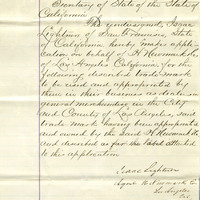 Secretary of State of the State of
California
Undersigned, Isaac
Lightner of San Francisco, State
of California, hereby makes appli-
cation on behalf of H Newmark & Co
of Los Angeles California, for the
following described trade mark
to be used and appropriated by
them in their business as dealers in
general merchandise in the City
and County of Los Angeles, said
trade mark having been appropriated
and owned by the said H Newmark & Co
and described as per the label attached
to this application
Isaac Lightner
Agent H Newmark & Co
Los Angeles
Cal